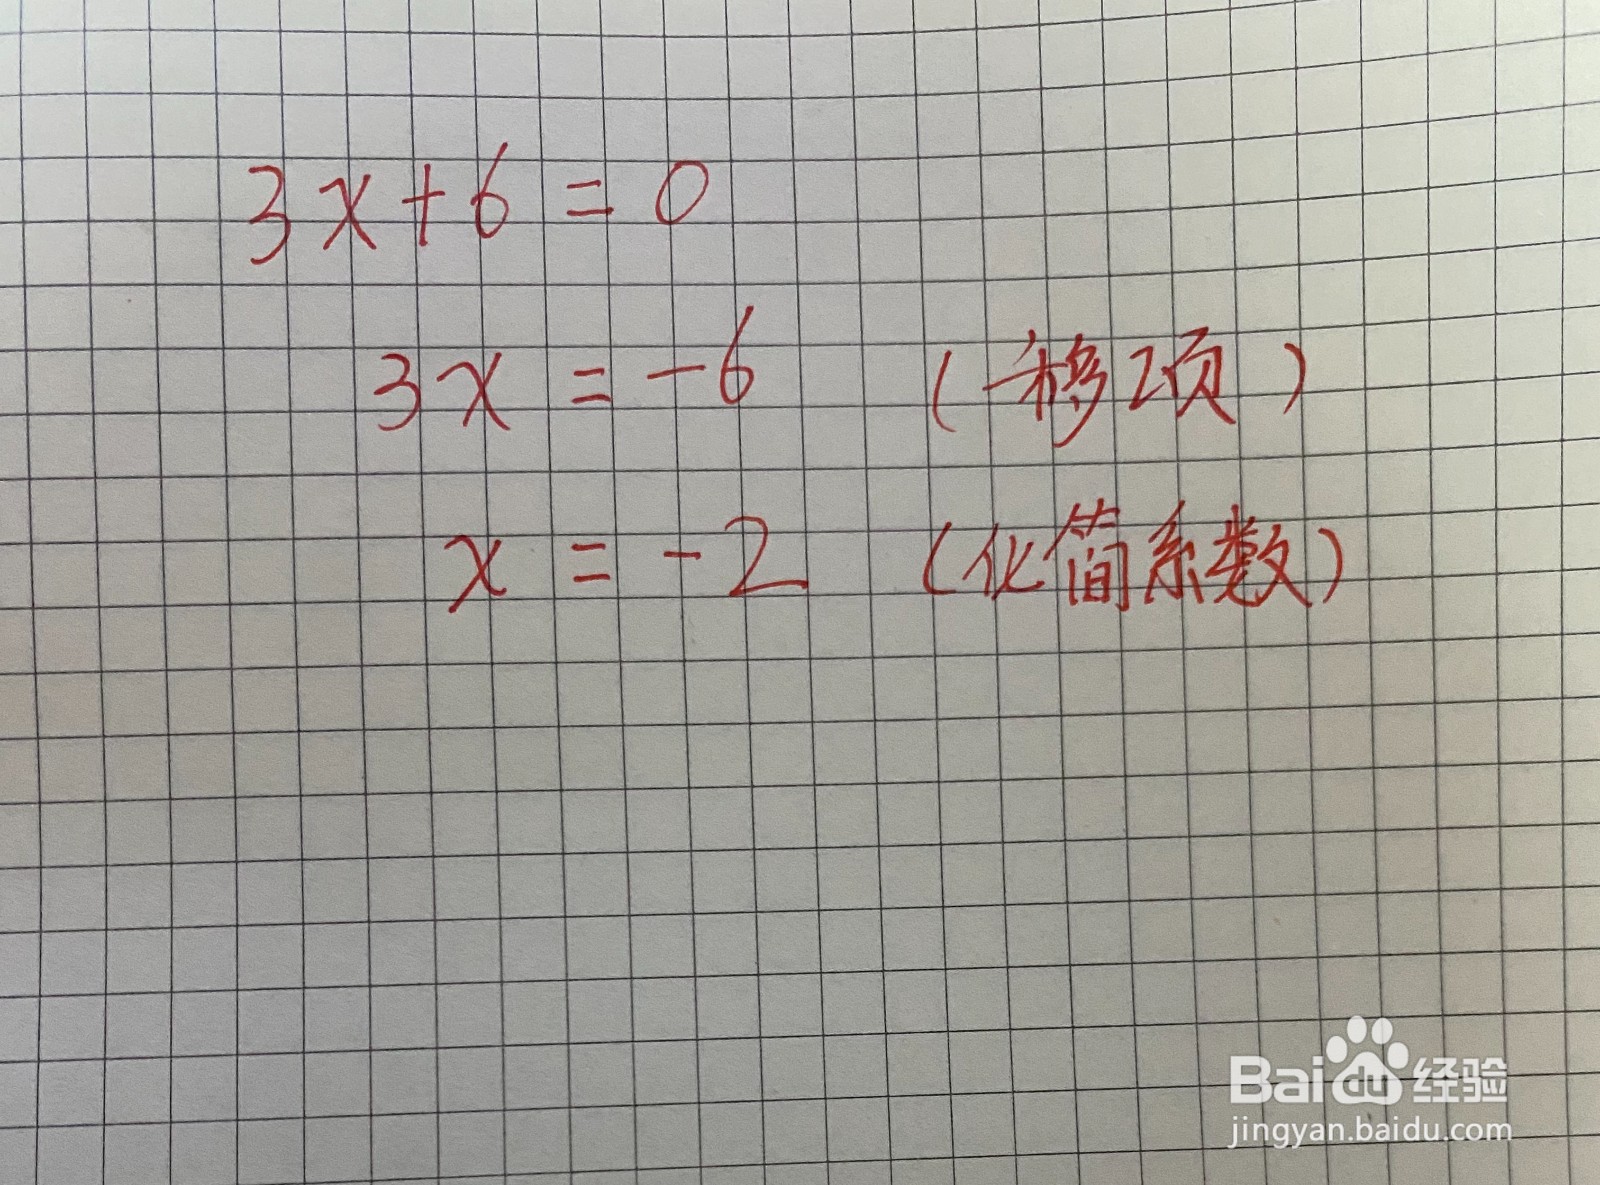 3x+6=0
3x=-6 (移项)
x=-2 (化简系数)
Baidu经验
jingyan.baidu.com